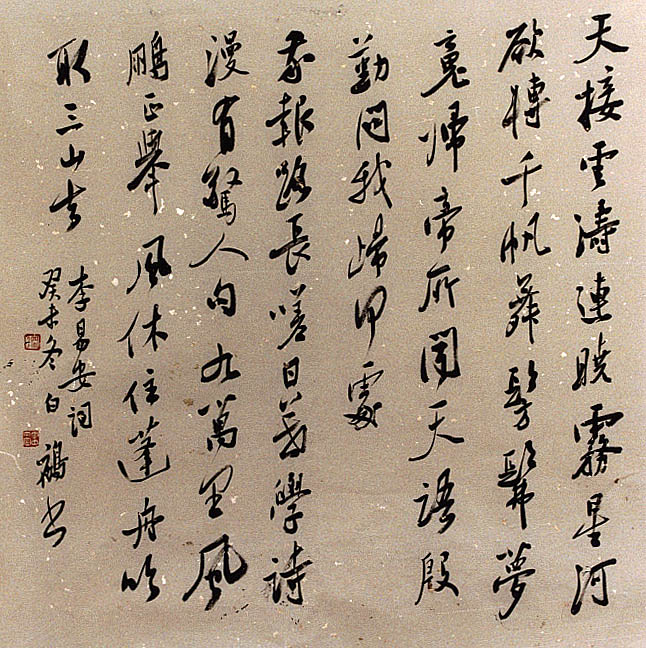 天接雲濤連曉霧星河
欲轉千帆舞髣髴夢
魂歸帝所聞天語殷
勤問我歸何處
我報路長嗟日暮學詩
漫有驚人句九萬里風
鵬正舉風休住蓬舟吹
取三山去
李易安詞
癸未冬白书